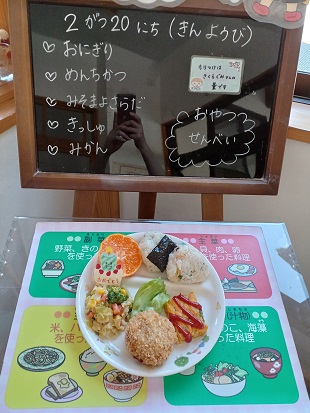 2がつ20にち(きんようび)
♡おにぎり
♡めんちかつ
♡みそまよさらだ
♡きっしゅ
♡みかん
もりつけは
さくらぐみさんの
量です
おやつ
せんべい
副菜
野菜、きの
を使った
主菜
貝、肉、卵
使った料理
米、パ
を使った
(汁物)
のこ、海藻
使った料理